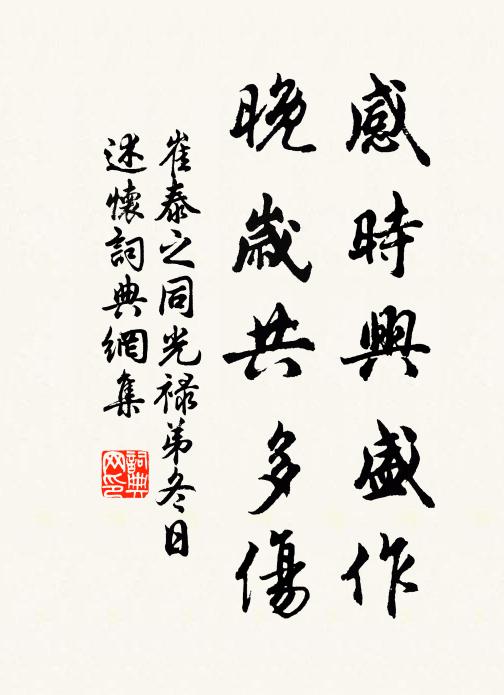 感時興盛作
晚歲共多傷
崔泰之同光祿弟冬日
述懷詞典網集
詞典
网印